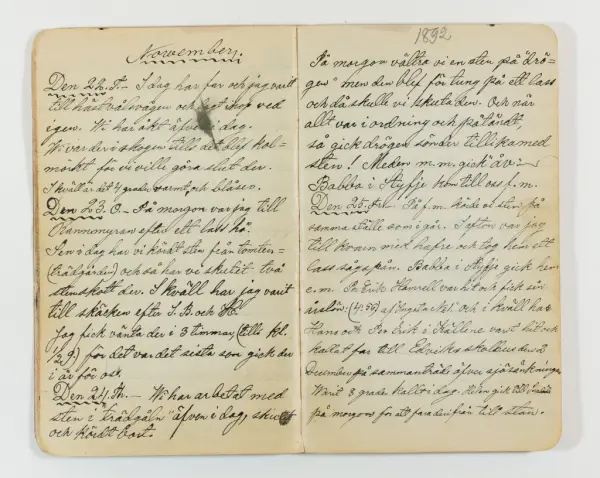 Nowember.
Den 22. T. — I dag har far och jag varit
till häst och lagt ihop ved
igen. Wi har åkt äfven i dag.
Wi var der i skogen tills det blef kol-
morkt för vi ville göra slut der.
I kväll är det 4 grader varmt och blåsen.
Den 23. O. — På morgon var jag till
efter ett lass hö.
Sen i dag har vi kördt sten från tomten =
(trädgården) och så ha vi skutit två
stenskott der. I kväll har jag varit
till efter S. B. och
Jag fick vänta der i 3 timmar, (tills kl.
½ 9.) för det var det sista som gick der
i år för oss.
Den 24. Th. — Wi har arbetat med
sten i trädgåln äfven i dag, skutit
och kördt bort.
1892
På morgon vältra vi en sten på "drö=
gen" men den blef för tung på ett lass
och då skulle vi skuta den. Och när
allt var i ordning och påtändt,
så gick drögen sönder tillika med
sten! Meden m. m. gick åv.
Babba i Styfje kom till oss f. m.
Den 25. Fr. — På f. m. körde vi sten på
samma ställe som i går. I afton var jag
till kvarn med hafre och tog hem ett
lass sågspån. Babba i Styfje gick hem
e. m. Per Erik var hit och fick sin
årslön: (4:50) af och i kväll har
Hans och Per Erik i Källene varit hit och
kallat far till Edviks skolhus den 2
December på sammanträde öfver sjösänkningen
Warit 8 grader kallt i dag. gick till
på morgon för att fara derifrån till stan.